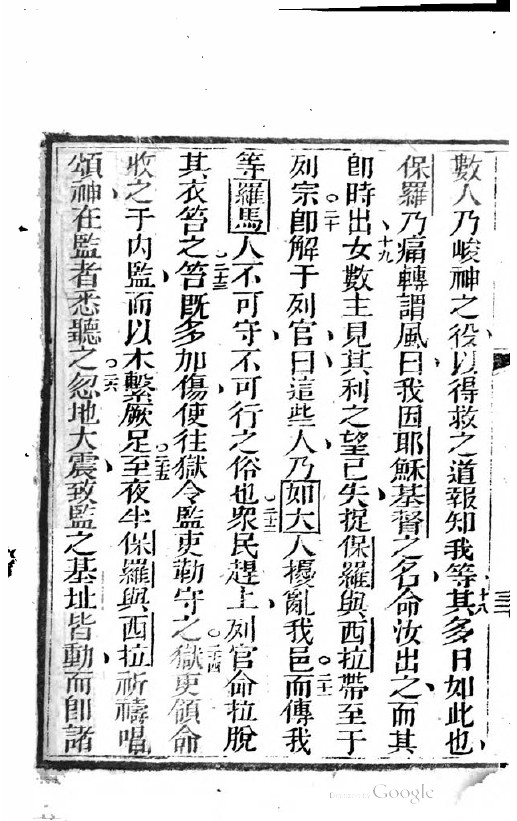 數人乃峻神之役以得救之道報知我等其多日如此也
十八
保羅乃痛轉謂風曰我因耶穌基督之名命汝出之而其
十九
卽時出女數主見其利之望已失捉保羅與西拉帶至于
二十
列宗卽解于列官曰這些人乃如大人擾亂我邑而傳我
二一
等羅馬人不可守不可行之俗也衆民趕上列官命拉脫
二二
其衣笞之笞旣多加傷使往獄令監吏勤守之獄吏領命
二三
二四
收之于內監而以木繫厥足至夜半保羅與西拉祈禱唱
二五
頌神在監者悉聽之忽地大震致監之基址皆動而卽諸
二六
Digitized by Google